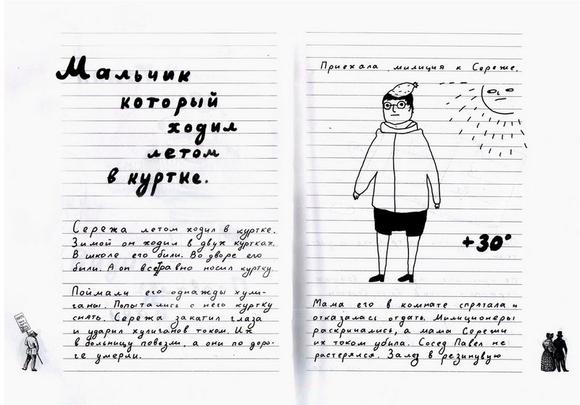 Мальчик
который
ходил
летом
в куртке.
Сережа летом ходил в куртке.
Зимой он ходил в двух куртках.
В школе его били. Во дворе его
били. А он всеравно носил куртку.
Поймали его однажды хули-
ганы. Попытались с него куртку
снять. Сережа закатил глаза
и ударил хулиганов током. Их
в больницу повезли, а они по доро-
ге умерли.
Приехала милиция к Сереже.
+30°
Мама его в комнате спрятала и
отказалась отдать. Милиционеры
раскричались, а мама Сережи
их током убила. Сосед Павел не
растерялся. Залез в резиновую